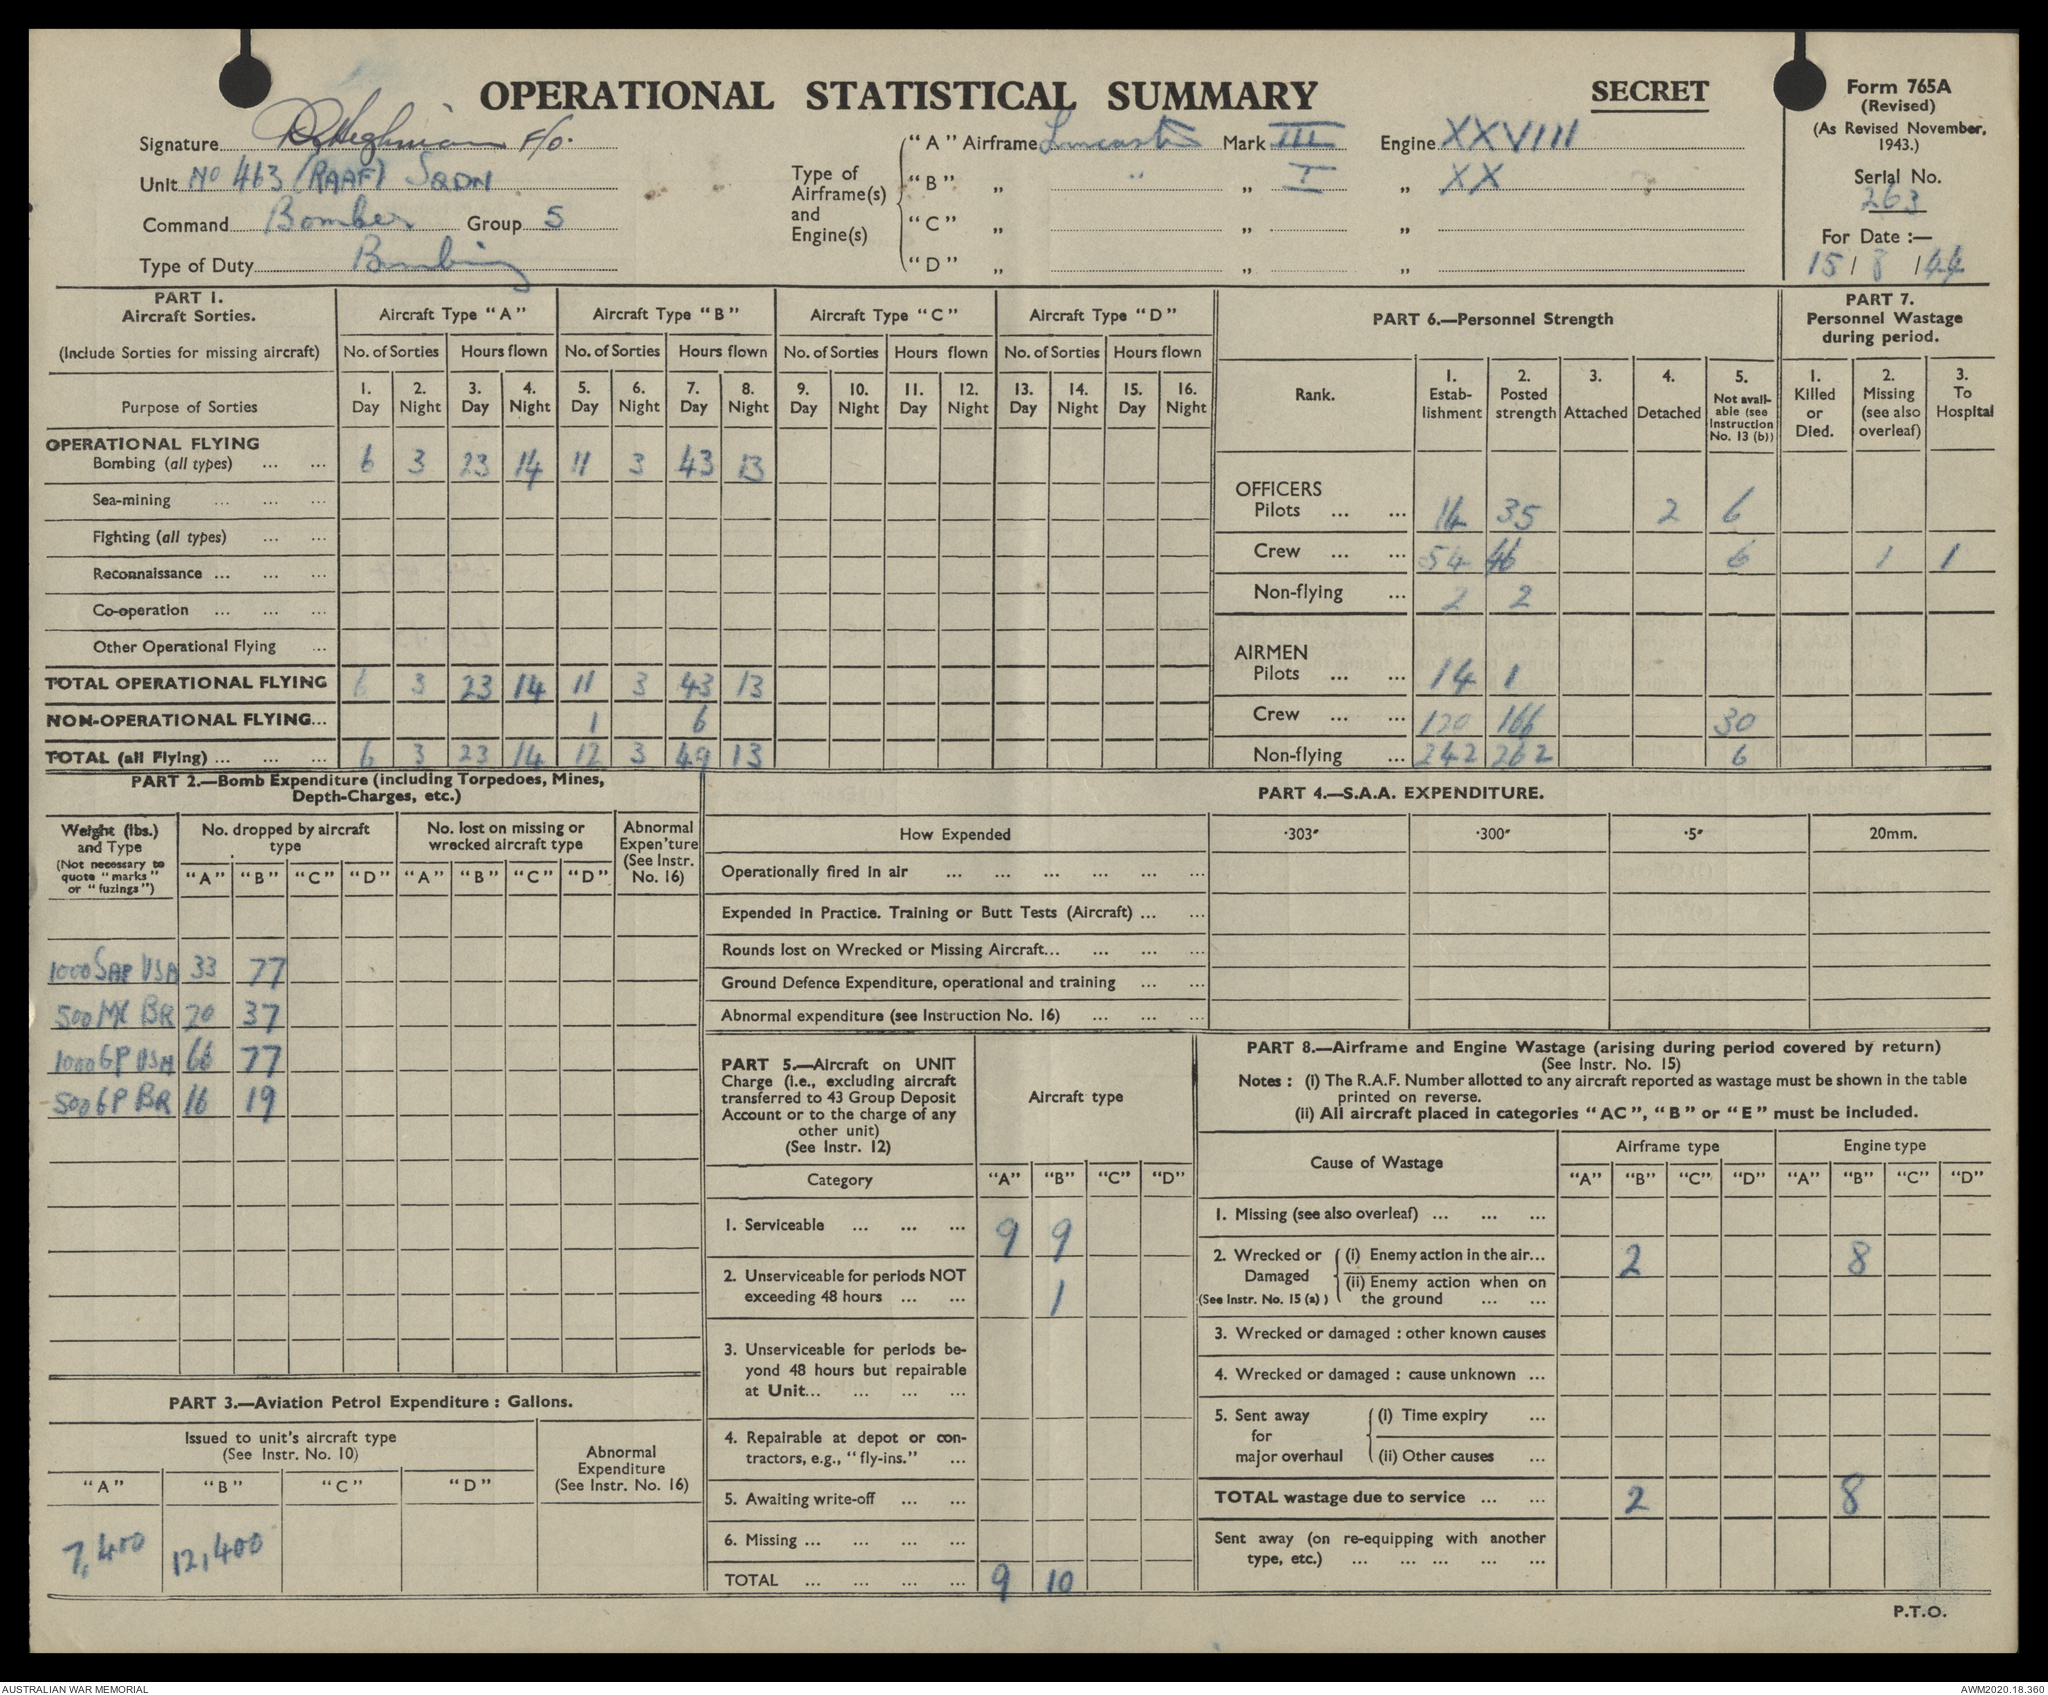 OPERATIONAL STATISTICAL SUMMARY
SECRET
Form 765A
(Revised)
(As Revised November, 1943.)
Serial No.
263
For Date :—
15 / 8 / 44
Signature F/O.
Unit No 463 (RAAF) SQDN
Command Bomber Group 5
Type of Duty Bombing
Type of Airframe(s) and Engine(s)
"A" Airframe Lancaster Mark III Engine XXVIII
"B" „ " „ I „ XX
"C" „ „ „
"D" „ „ „
PART 1.
Aircraft Sorties.
(Include Sorties for missing aircraft)
Aircraft Type "A" Aircraft Type "B" Aircraft Type "C" Aircraft Type "D"
No. of Sorties Hours flown No. of Sorties Hours flown No. of Sorties Hours flown No. of Sorties Hours flown
1. 2. 3. 4. 5. 6. 7. 8. 9. 10. 11. 12. 13. 14. 15. 16.
Purpose of Sorties Day Night Day Night Day Night Day Night Day Night Day Night Day Night Day Night
OPERATIONAL FLYING
Bombing (all types) ... ... 6 3 23 14 11 3 43 13
Sea-mining ... ... ...
Fighting (all types) ... ...
Reconnaissance ... ... ...
Co-operation ... ... ...
Other Operational Flying ...
TOTAL OPERATIONAL FLYING 6 3 23 14 11 3 43 13
NON-OPERATIONAL FLYING... 1 6
TOTAL (all Flying) ... ... ... 6 3 23 14 12 3 49 13
PART 6.—Personnel Strength
Rank.
1. Estab-lishment
2. Posted strength
3. Attached
4. Detached
5. Not avail-able (see Instruction No. 13 (b))
PART 7.
Personnel Wastage during period.
1. Killed or Died.
2. Missing (see also overleaf)
3. To Hospital
OFFICERS
Pilots ... ... 14 35 2 6
Crew ... ... 54 46 6 1 1
Non-flying ... 2 2
AIRMEN
Pilots ... ... 14 1
Crew ... ... 120 166 30
Non-flying ... 242 262 6
PART 2.—Bomb Expenditure (including Torpedoes, Mines,
Depth-Charges, etc.)
Weight (lbs.) and Type
(Not necessary to quote "marks" or "fuzings")
No. dropped by aircraft type
No. lost on missing or wrecked aircraft type
Abnormal Expen'ture (See Instr. No. 16)
"A" "B" "C" "D" "A" "B" "C" "D"
1000 SAP USA 33 77
500 MC BR 20 37
1000 GP USA 66 77
500 GP BR 16 19
PART 3.—Aviation Petrol Expenditure : Gallons.
Issued to unit's aircraft type
(See Instr. No. 10)
Abnormal Expenditure (See Instr. No. 16)
"A" "B" "C" "D"
7,400 12,400
PART 4.—S.A.A. EXPENDITURE.
How Expended ·303" ·300" ·5" 20mm.
Operationally fired in air ... ... ... ... ... ...
Expended in Practice. Training or Butt Tests (Aircraft) ... ...
Rounds lost on Wrecked or Missing Aircraft... ... ... ...
Ground Defence Expenditure, operational and training ... ...
Abnormal expenditure (see Instruction No. 16) ... ... ...
PART 5.—Aircraft on UNIT
Charge (i.e., excluding aircraft
transferred to 43 Group Deposit
Account or to the charge of any
other unit)
(See Instr. 12)
Aircraft type
Category "A" "B" "C" "D"
1. Serviceable ... ... ... 9 9
2. Unserviceable for periods NOT
exceeding 48 hours ... ... 1
3. Unserviceable for periods be-
yond 48 hours but repairable
at Unit... ... ... ...
4. Repairable at depot or con-
tractors, e.g., "fly-ins." ...
5. Awaiting write-off ... ...
6. Missing ... ... ... ...
TOTAL ... ... ... ... 9 10
PART 8.—Airframe and Engine Wastage (arising during period covered by return)
(See Instr. No. 15)
Notes : (i) The R.A.F. Number allotted to any aircraft reported as wastage must be shown in the table
printed on reverse.
(ii) All aircraft placed in categories "AC", "B" or "E" must be included.
Cause of Wastage Airframe type Engine type
"A" "B" "C" "D" "A" "B" "C" "D"
1. Missing (see also overleaf) ... ... ...
2. Wrecked or Damaged (See Instr. No. 15 (a) )
(i) Enemy action in the air... 2 8
(ii) Enemy action when on
the ground ... ...
3. Wrecked or damaged : other known causes
4. Wrecked or damaged : cause unknown ...
5. Sent away for major overhaul
(i) Time expiry ...
(ii) Other causes ...
TOTAL wastage due to service ... ... 2 8
Sent away (on re-equipping with another
type, etc.) ... ... ... ... ...
P.T.O.
AUSTRALIAN WAR MEMORIAL
AWM2020.18.360